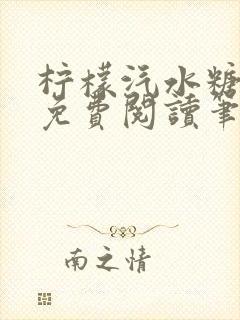 柠檬汽水糖
免費閱讀筆
南之情